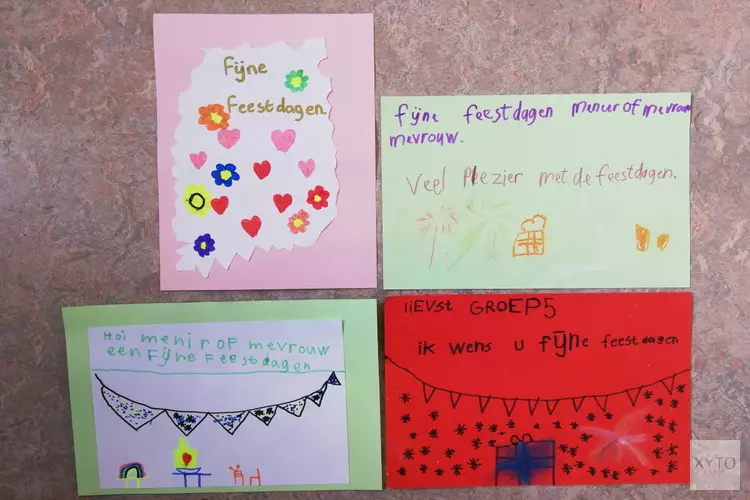 Fijne
feestdagen
fijne feestdagen meneer of mevrouw
mevrouw.
Veel Plezier met de feestdagen.
Hoi menir of mevrouw
een Fijne Feestdagen
liEVst GROEP5
ik wens u fijne feestdagen
XYTO